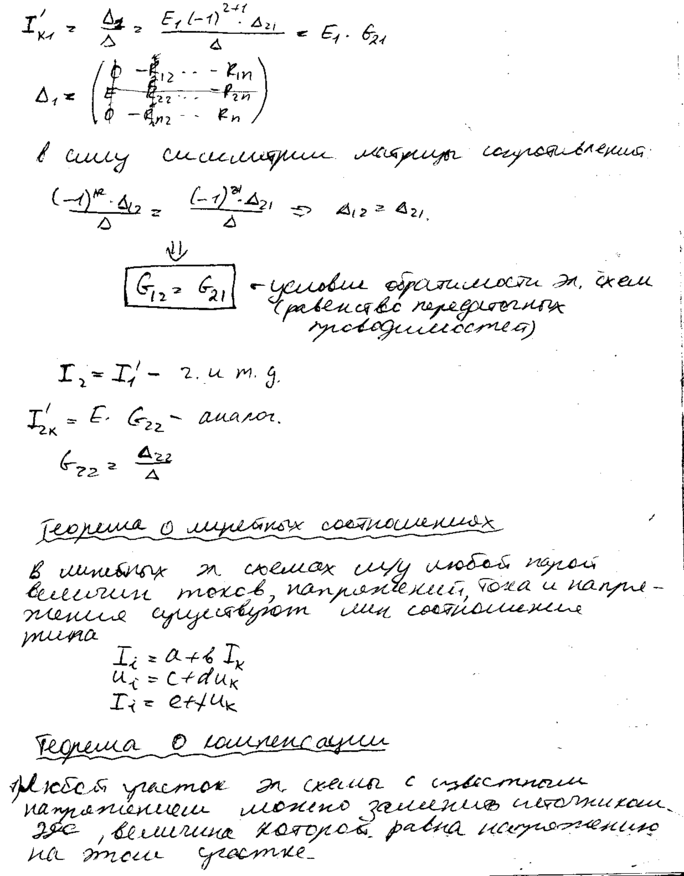 I'к1 = Δ1/Δ = E1(-1)^2+1 · Δ21/Δ = E1 · G21
Δ1 = (0 -R12 ... -R1n
E R22 ... -R2n
0 -Rn2 ... Rn)
в силу симметрии матрицы сопротивлений
(-1)^12 · Δ12/Δ = (-1)^21 · Δ21/Δ ⇒ Δ12 = Δ21.
⇓
G12 = G21 - условие обратимости эл. схем
(равенство передаточных
проводимостей)
I2 = I1' - ч. и т. д.
I'2к = E · G22 - аналог.
G22 = Δ22/Δ
Теорема о линейных соотношениях
В линейных эл схемах м/у любой парой
величин токов, напряжений, тока и напря-
жения существуют лин соотношения
типа
Ii = a + b Iк
ui = c + d uк
Ii = e + f uк
Теорема о компенсации
1) Любой участок эл. схемы с известным
напряжением можно заменить источником
ЭДС, величина которой равна напряжению
на этом участке.